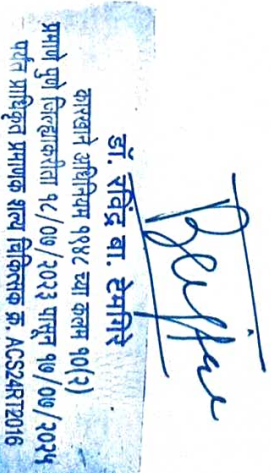 डॉ. रविंद्र वा. टेमगिरे
कारखाने अधिनियम १९४८ च्या कलम १०(२)
प्रमाणे पुणे जिल्ह्याकरीता १८/०७/२०२३ पासून १७/०७/२०२५
पर्यंत प्राधिकृत प्रमाणक शल्य चिकित्सक क्र. ACS24RT2016